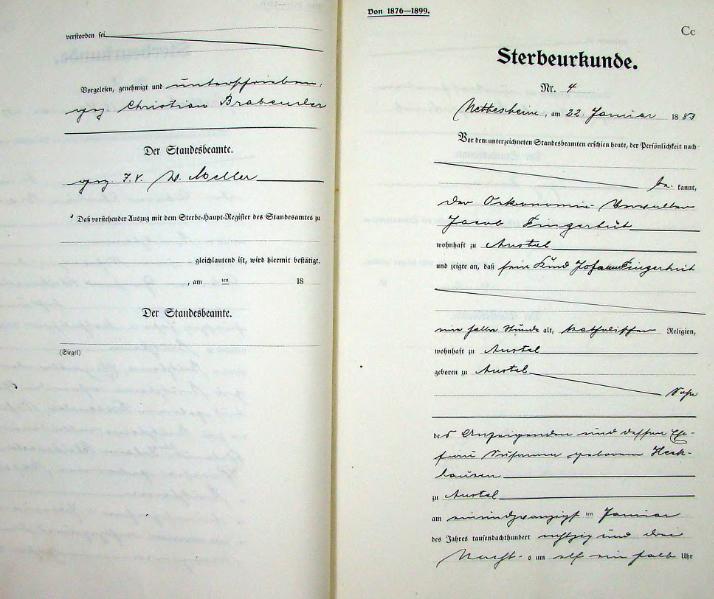 verstorben sei
Vorgelesen, genehmigt und unterschrieben.
gez. Christian
Der Standesbeamte.
gez. I. V. W. Moeller
Daß vorstehender Auszug mit dem Sterbe-Haupt-Register des Standesamtes zu
gleichlautend ist, wird hiermit bestätigt.
, am ten 18
Der Standesbeamte.
(Siegel)
Von 1876—1899.
Cc
Sterbeurkunde.
Nr. 4
Nettesheim, am 22 Januar 1883
Vor dem unterzeichneten Standesbeamten erschien heute, der Persönlichkeit nach
be kannt,
der Oekonomie Verwalter
Jacob Fingerhut
wohnhaft zu Anstel
und zeigte an, daß sein Kind Johann Fingerhut
eine halbe Stunde alt, katholischer Religion,
wohnhaft zu Anstel
geboren zu Anstel
Sohn
des Anzeigenden und dessen Ehe-
frau Susanna geborene
zu Anstel
am einundzwanzigsten Januar
des Jahres tausendachthundert achtzig und drei
Nachts um elf ein halb Uhr